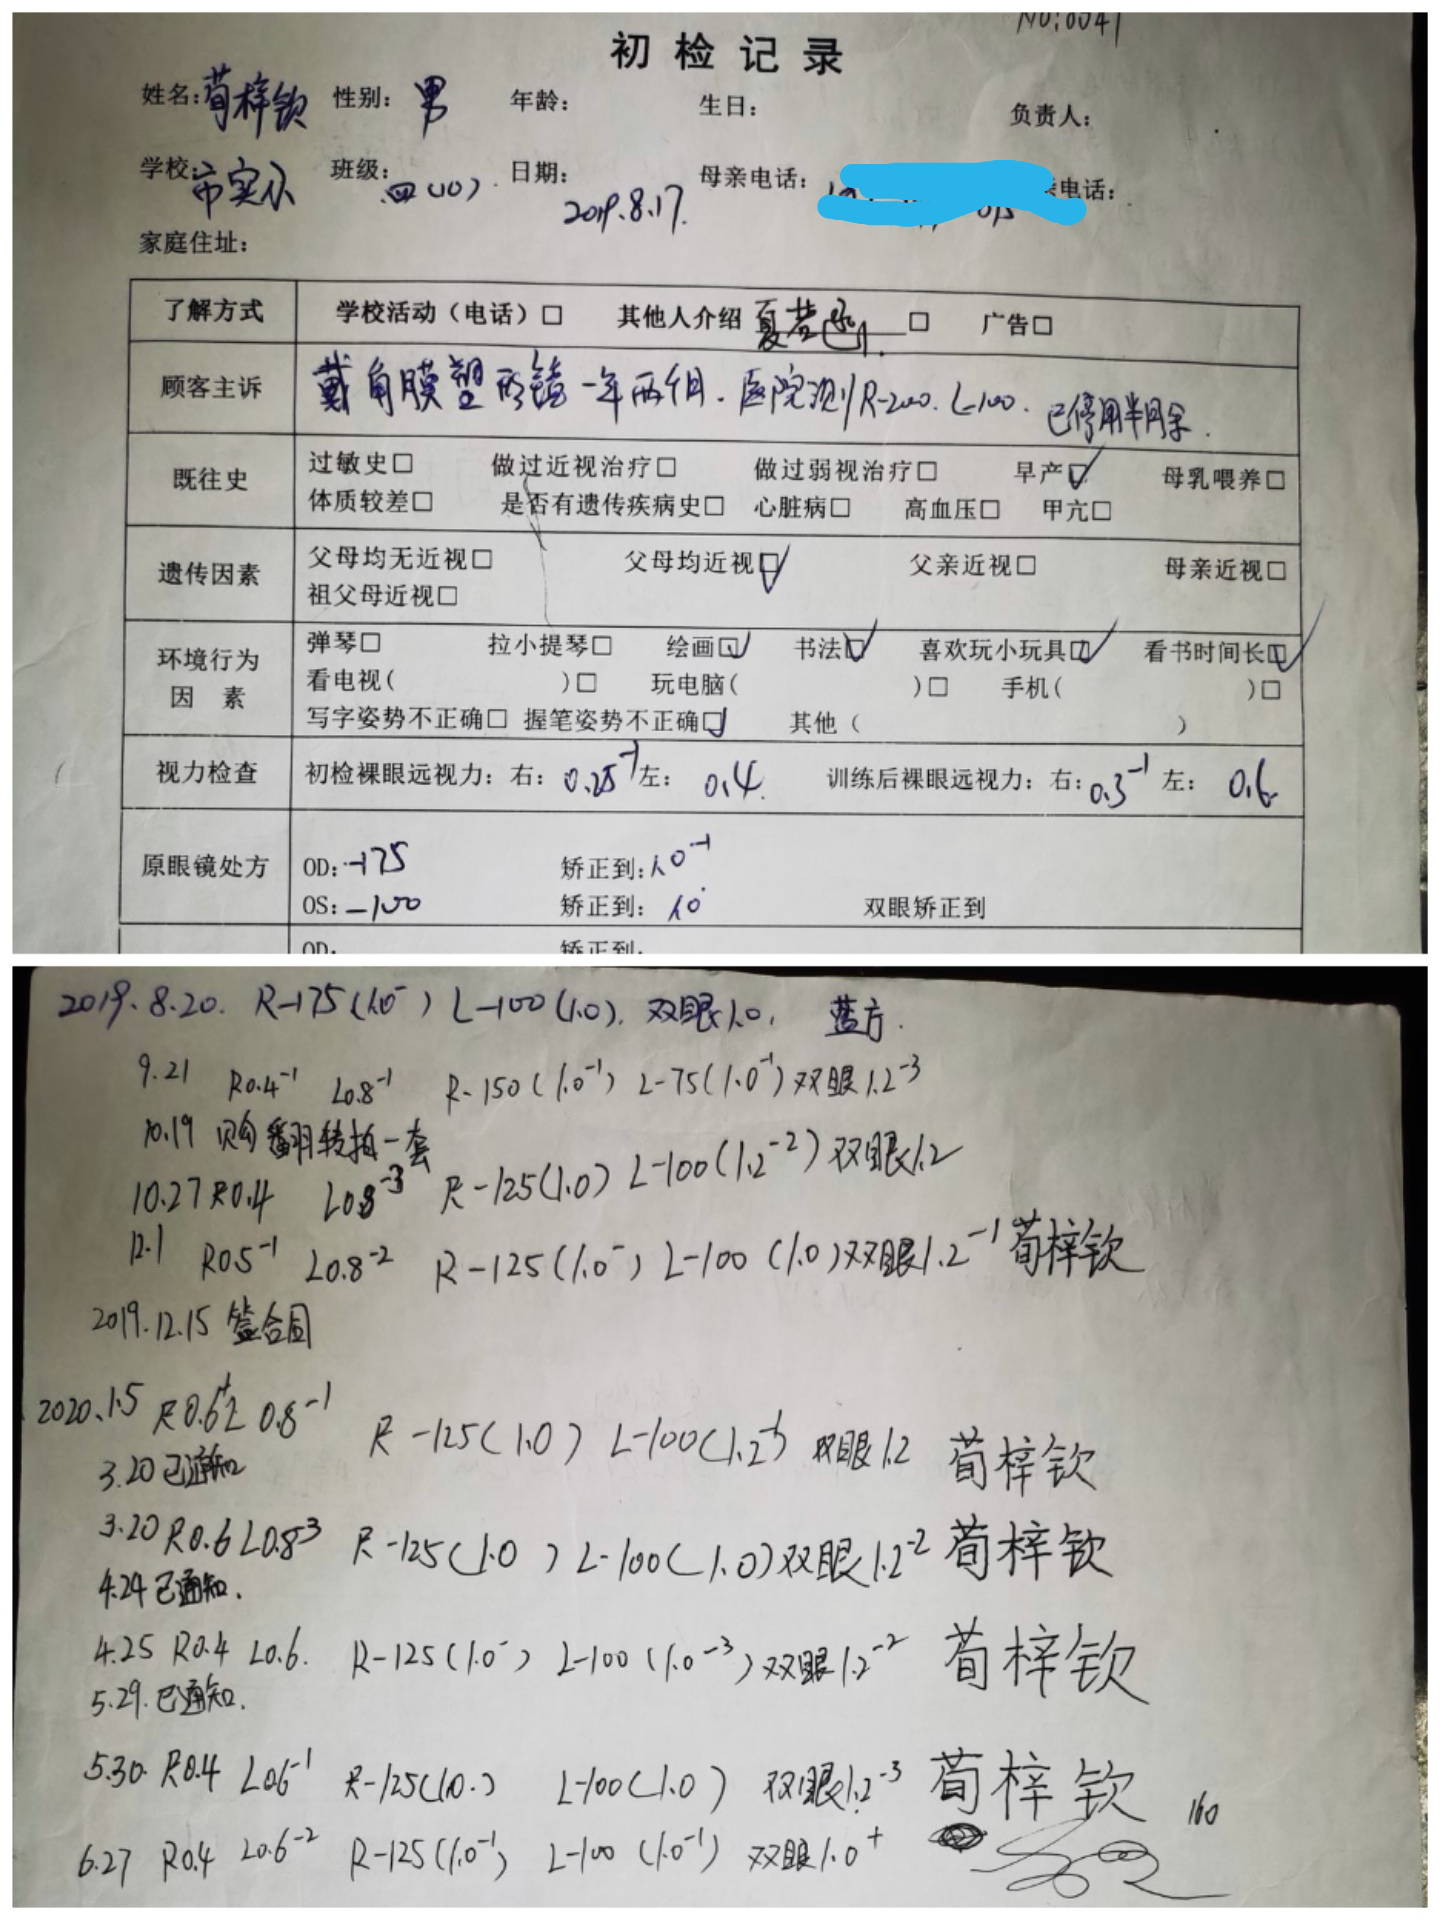 NO:0041
初检记录
姓名:荀梓钦 性别:男 年龄: 生日: 负责人:
学校:市实小 班级:四(10) 日期:2019.8.17. 母亲电话: 电话:
家庭住址:
了解方式 学校活动(电话)□ 其他人介绍 夏若 □ 广告□
顾客主诉 戴角膜塑形镜一年两个月.医院测R-200.L-100.已停用半月余.
既往史 过敏史□ 做过近视治疗□ 做过弱视治疗□ 早产☑ 母乳喂养□
体质较差□ 是否有遗传疾病史□ 心脏病□ 高血压□ 甲亢□
遗传因素 父母均无近视□ 父母均近视☑ 父亲近视□ 母亲近视□
祖父母近视□
环境行为因素 弹琴□ 拉小提琴□ 绘画☑ 书法☑ 喜欢玩小玩具☑ 看书时间长☑
看电视( )□ 玩电脑( )□ 手机( )□
写字姿势不正确□ 握笔姿势不正确☑ 其他( )
视力检查 初检裸眼远视力:右:0.25⁻¹ 左:0.4. 训练后裸眼远视力:右:0.3⁻¹ 左:0.6
原眼镜处方 OD:-175 矫正到:1.0⁻¹
OS:-100 矫正到:1.0 双眼矫正到
OD: 矫正到:
2019.8.20. R-175(1.0⁻) L-100(1.0). 双眼1.0. 蓝方.
9.21 R0.4⁻¹ L0.8⁻¹ R-150(1.0⁻¹) L-75(1.0⁻¹)双眼1.2⁻³
10.19 购翻转拍一套
10.27 R0.4 L0.8⁻³ R-125(1.0) L-100(1.2⁻²)双眼1.2
12.1 R0.5⁻¹ L0.8⁻² R-125(1.0⁻) L-100(1.0)双眼1.2⁻¹ 荀梓钦
2019.12.15 签合同
2020.1.5 R0.6⁺ L0.8⁻¹ R-125(1.0) L-100(1.2⁻¹) 双眼1.2 荀梓钦
3.20已通知
3.20 R0.6 L0.8³ R-125(1.0) L-100(1.0)双眼1.2⁻² 荀梓钦
4.24已通知.
4.25 R0.4 L0.6. R-125(1.0⁻) L-100(1.0⁻³)双眼1.2⁻² 荀梓钦
5.29.已通知.
5.30. R0.4 L0.6⁻¹ R-125(1.0.) L-100(1.0) 双眼1.2⁻³ 荀梓钦
160
6.27 R0.4 L0.6⁻² R-125(1.0⁻¹) L-100(1.0⁻¹) 双眼1.0⁺